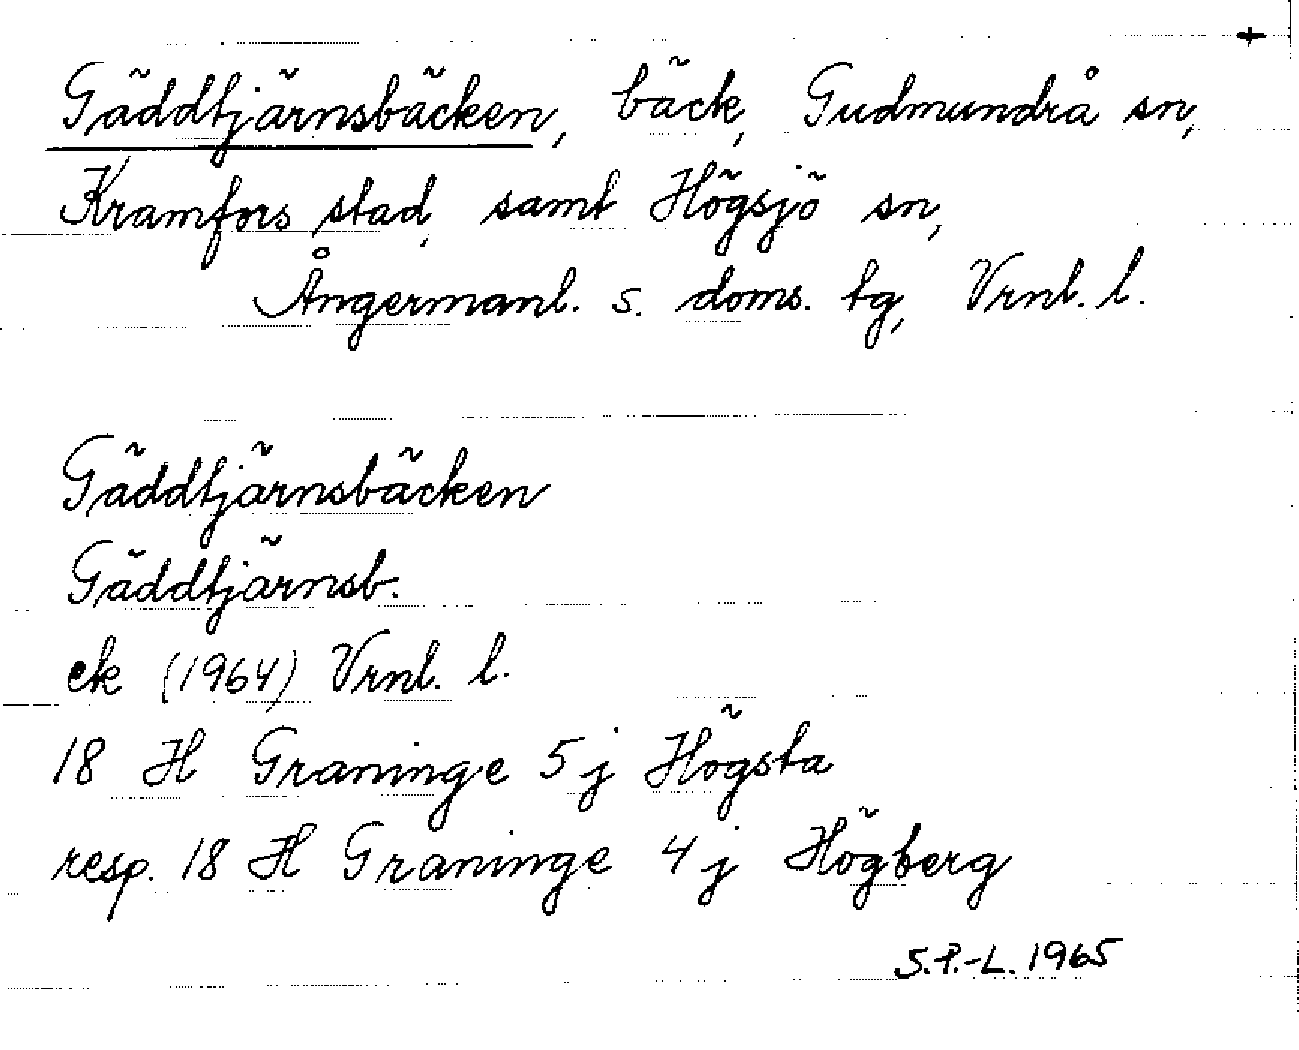 +
Gäddtjärnsbäcken, bäck, Gudmundrå sn,
Kramfors stad, samt Högsjö sn,
Ångermanl. s. doms. tg, Vrnl. l.
Gäddtjärnsbäcken
Gäddtjärnsb.
ek (1964) Vrnl. l.
18 H Graninge 5 j Högsta
resp. 18 H Graninge 4 j Högberg
S.P.-L. 1965